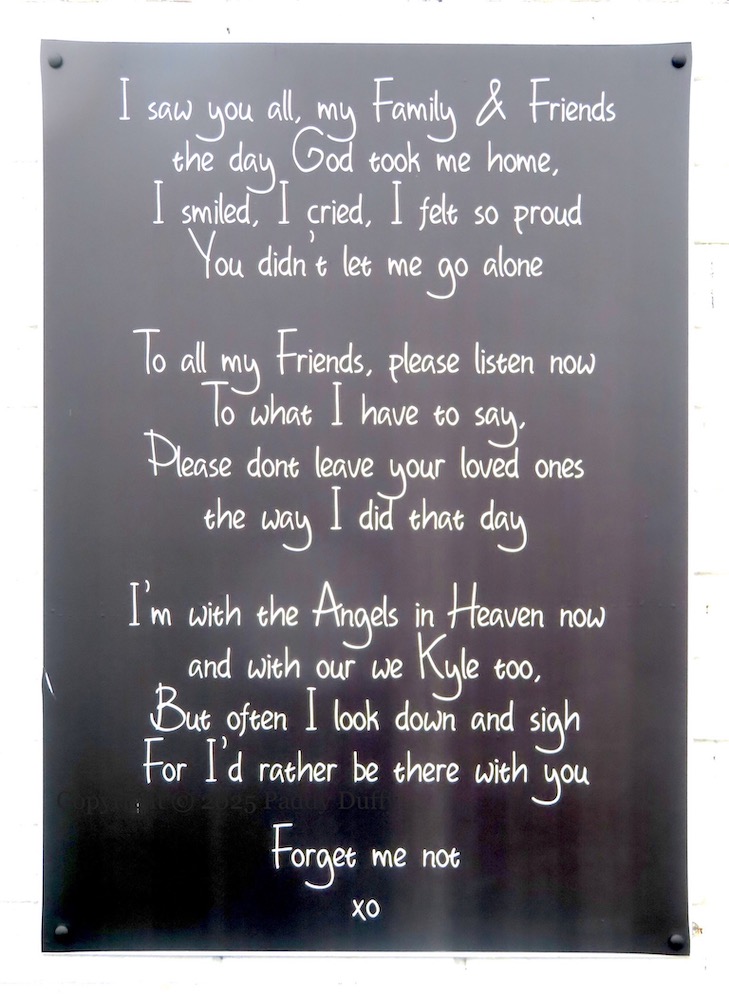 I saw you all, my Family & Friends
the day God took me home,
I smiled, I cried, I felt so proud
You didn't let me go alone
To all my Friends, please listen now
To what I have to say,
Please dont leave your loved ones
the way I did that day
I'm with the Angels in Heaven now
and with our we Kyle too,
But often I look down and sigh
For I'd rather be there with you
Copyright © 2025 Paddy Duffy
Forget me not
xo